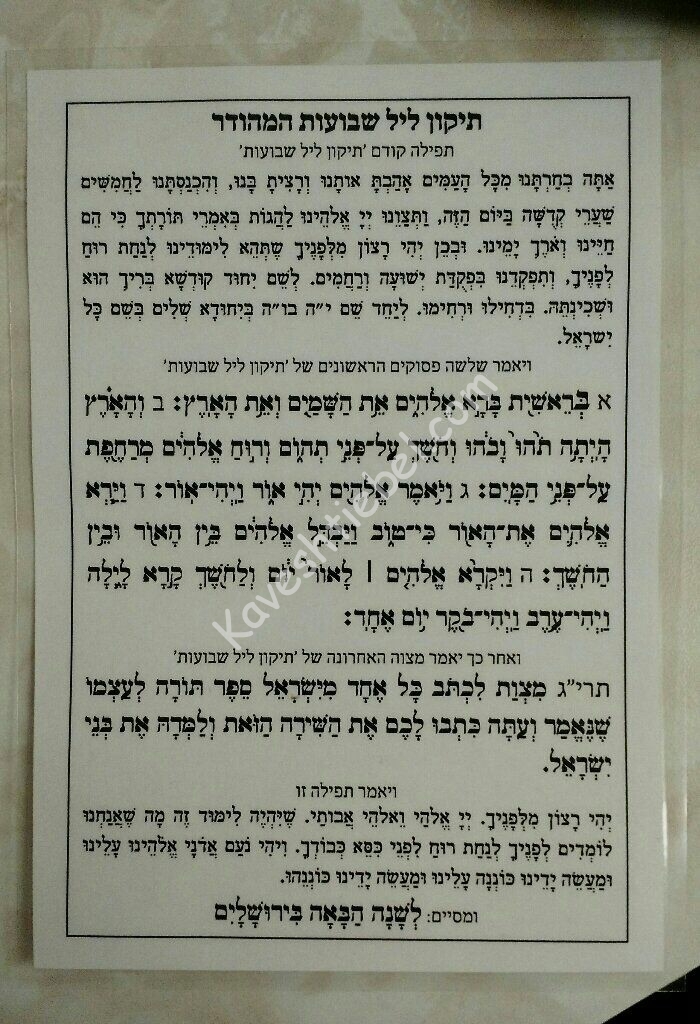 תיקון ליל שבועות המהודר
תפילה קודם ׳תיקון ליל שבועות׳
אַתָּה בְחַרְתָּנוּ מִכָּל הָעַמִּים אָהַבְתָּ אוֹתָנוּ וְרָצִיתָ בָּנוּ, וְהִכְנַסְתָּנוּ לַחֲמִשִּׁים
שַׁעֲרֵי קְדֻשָּׁה בַּיּוֹם הַזֶּה, וַתְּצַוֵּנוּ יְיָ אֱלֹהֵינוּ לַהֲגוֹת בְּאִמְרֵי תּוֹרָתְךָ כִּי הֵם
חַיֵּינוּ וְאֹרֶךְ יָמֵינוּ. וּבְכֵן יְהִי רָצוֹן מִלְּפָנֶיךָ שֶׁתְּהֵא לִימּוּדֵינוּ לְנַחַת רוּחַ
לְפָנֶיךָ, וְתִפְקְדֵנוּ בִּפְקֻדַּת יְשׁוּעָה וְרַחֲמִים. לְשֵׁם יִחוּד קוּדְשָׁא בְּרִיךְ הוּא
וּשְׁכִינְתֵּהּ. בִּדְחִילוּ וּרְחִימוּ. לְיַחֵד שֵׁם י״ה בו״ה בְּיִחוּדָא שְׁלִים בְּשֵׁם כָּל
יִשְׂרָאֵל.
ויאמר שלשה פסוקים הראשונים של ׳תיקון ליל שבועות׳
א בְּרֵאשִׁ֖ית בָּרָ֣א אֱלֹהִ֑ים אֵ֥ת הַשָּׁמַ֖יִם וְאֵ֥ת הָאָֽרֶץ׃ ב וְהָאָ֗רֶץ
הָיְתָ֥ה תֹ֙הוּ֙ וָבֹ֔הוּ וְחֹ֖שֶׁךְ עַל־פְּנֵ֣י תְה֑וֹם וְר֣וּחַ אֱלֹהִ֔ים מְרַחֶ֖פֶת
עַל־פְּנֵ֥י הַמָּֽיִם׃ ג וַיֹּ֥אמֶר אֱלֹהִ֖ים יְהִ֣י א֑וֹר וַֽיְהִי־אֽוֹר׃ ד וַיַּ֧רְא
אֱלֹהִ֛ים אֶת־הָא֖וֹר כִּי־ט֑וֹב וַיַּבְדֵּ֣ל אֱלֹהִ֔ים בֵּ֥ין הָא֖וֹר וּבֵ֥ין
הַחֹֽשֶׁךְ׃ ה וַיִּקְרָ֨א אֱלֹהִ֤ים ׀ לָאוֹר֙ י֔וֹם וְלַחֹ֖שֶׁךְ קָ֣רָא לָ֑יְלָה
וַֽיְהִי־עֶ֥רֶב וַֽיְהִי־בֹ֖קֶר י֥וֹם אֶחָֽד׃
ואחר כך יאמר מצוה האחרונה של ׳תיקון ליל שבועות׳
תרי״ג מִצְוַת לִכְתֹּב כָּל אֶחָד מִיִּשְׂרָאֵל סֵפֶר תּוֹרָה לְעַצְמוֹ
שֶׁנֶּאֱמַר וְעַתָּה כִּתְבוּ לָכֶם אֶת הַשִּׁירָה הַזֹּאת וְלַמְּדָהּ אֶת בְּנֵי
יִשְׂרָאֵל.
ויאמר תפילה זו
יְהִי רָצוֹן מִלְּפָנֶיךָ. יְיָ אֱלֹהַי וֵאלֹהֵי אֲבוֹתַי. שֶׁיִּהְיֶה לִימּוּד זֶה מָה שֶׁאֲנַחְנוּ
לוֹמְדִים לְפָנֶיךָ לְנַחַת רוּחַ לִפְנֵי כִּסֵּא כְּבוֹדֶךָ. וִיהִי נֹעַם אֲדֹנָי אֱלֹהֵינוּ עָלֵינוּ
וּמַעֲשֵׂה יָדֵינוּ כּוֹנְנָה עָלֵינוּ וּמַעֲשֵׂה יָדֵינוּ כּוֹנְנֵהוּ.
ומסיים: לְשָׁנָה הַבָּאָה בִּירוּשָׁלָיִם
Kaveshtiebel.com